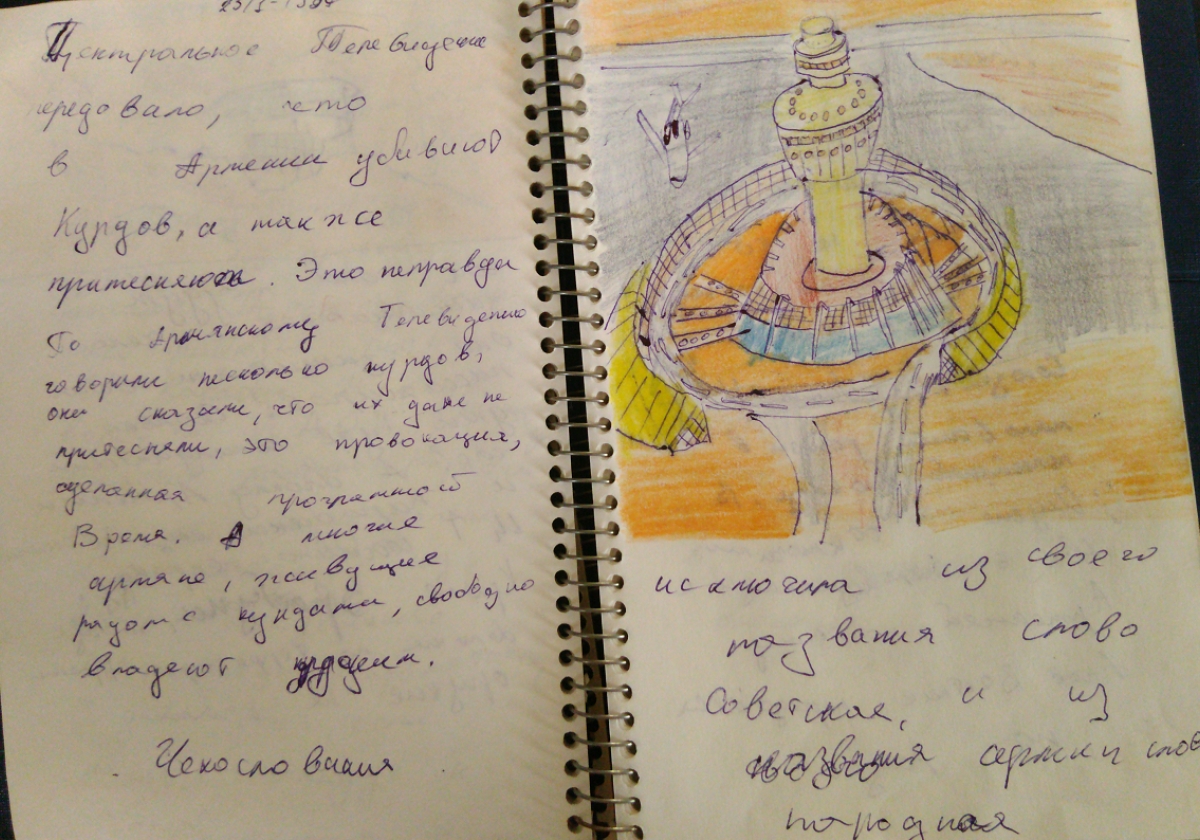 Центральное Телевидение
передавало, что
в Армении убивают
Курдов, а также
притесняют. Это неправда
По Армянскому Телевидению
говорили несколько курдов,
они сказали, что их даже не
притесняли, это провокация,
сделанная программой
Время. А многие
армяне, живущие
рядом с курдами, свободно
владеют
Чехословакия
исключила из своего
названия слово
Советская, и из
названия армии слов
народная